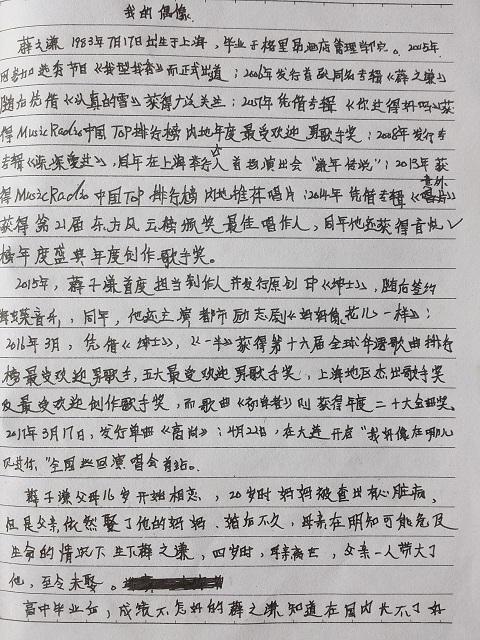 我的偶像
薛之谦 1983年7月17日出生于上海，毕业于格里昂酒店管理学院。2005年
因参加选秀节目《我型我秀》而正式出道；2006年发行首张同名专辑《薛之谦》
随后凭借《认真的雪》获得广泛关注；2007年凭借专辑《你过得好吗》获
得MusicRadio中国TOP排行榜内地年度最受欢迎男歌手奖；2008年发行专
专辑《深深爱过》，同年在上海举行个人首场演出会"谦年传说"；2013年获
得MusicRadio中国TOP排行榜内地推荐唱片；2014年凭借专辑《意外》
获得第21届东方风云榜颁奖最佳唱作人，同年他还获得音悦
榜年度盛典年度创作歌手奖。
2015年，薛之谦首度担当制作人并发行原创EP《绅士》，随后签约
海蝶音乐，同年，他还主演都市励志剧《妈妈像花儿一样》；
2016年3月，凭借《绅士》，《一半》获得第十六届全球华语歌曲排行
榜最受欢迎男歌手，五大最受欢迎男歌手奖，上海地区杰出歌手奖
及最受欢迎创作歌手奖，而歌曲《初学者》则获得年度二十大金曲奖。
2017年3月17日，发行单曲《高尚》；4月22日，在大连开启"我好像在哪儿
见过你"全国巡回演唱会首站。
薛之谦父母16岁开始相恋，20岁时妈妈被查出有心脏病，
但是父亲依然娶了他的妈妈，婚后不久，母亲在明知可能危及
生命的情况下生下薛之谦，四岁时，母亲离世，父亲一人带大了
他，至今未娶。
高中毕业后，成绩不怎好的薛之谦知道在国内上不了好